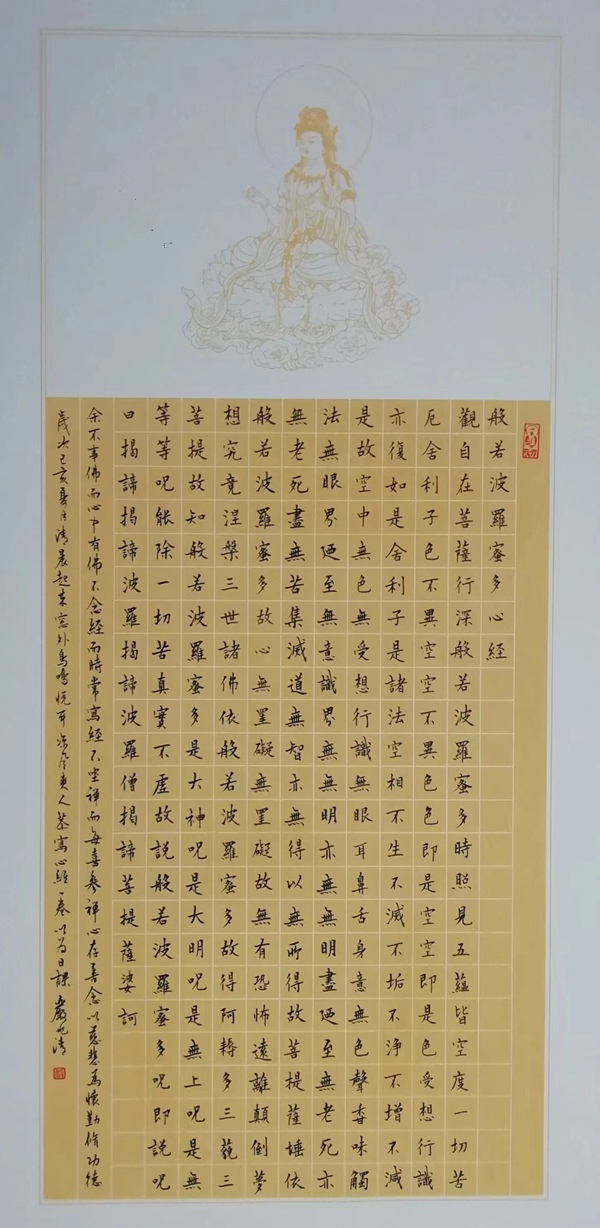 般若波羅蜜多心經
觀自在菩薩行深般若波羅蜜多時照見五蘊皆空度一切苦
厄舍利子色不異空空不異色色即是空空即是色受想行識
亦復如是舍利子是諸法空相不生不滅不垢不淨不增不減
是故空中無色無受想行識無眼耳鼻舌身意無色聲香味觸
法無眼界廼至無意識界無無明亦無無明盡廼至無老死亦
無老死盡無苦集滅道無智亦無得以無所得故菩提薩埵依
般若波羅蜜多故心無罣礙無罣礙故無有恐怖遠離顛倒夢
想究竟涅槃三世諸佛依般若波羅蜜多故得阿耨多三藐三
菩提故知般若波羅蜜多是大神呪是大明呪是無上呪是無
等等呪能除一切苦真實不虛故説般若波羅蜜多呪即説呪
曰揭諦揭諦波羅揭諦波羅僧揭諦菩提薩婆訶
余不事佛而心中有佛不念經而時常寫經不坐禪而每喜參禪心存善念以慈悲為懷勤脩功德
歲次己亥夏月清晨起來窗外鳥鳴悅耳涼風爽人恭寫心經一卷以為日課